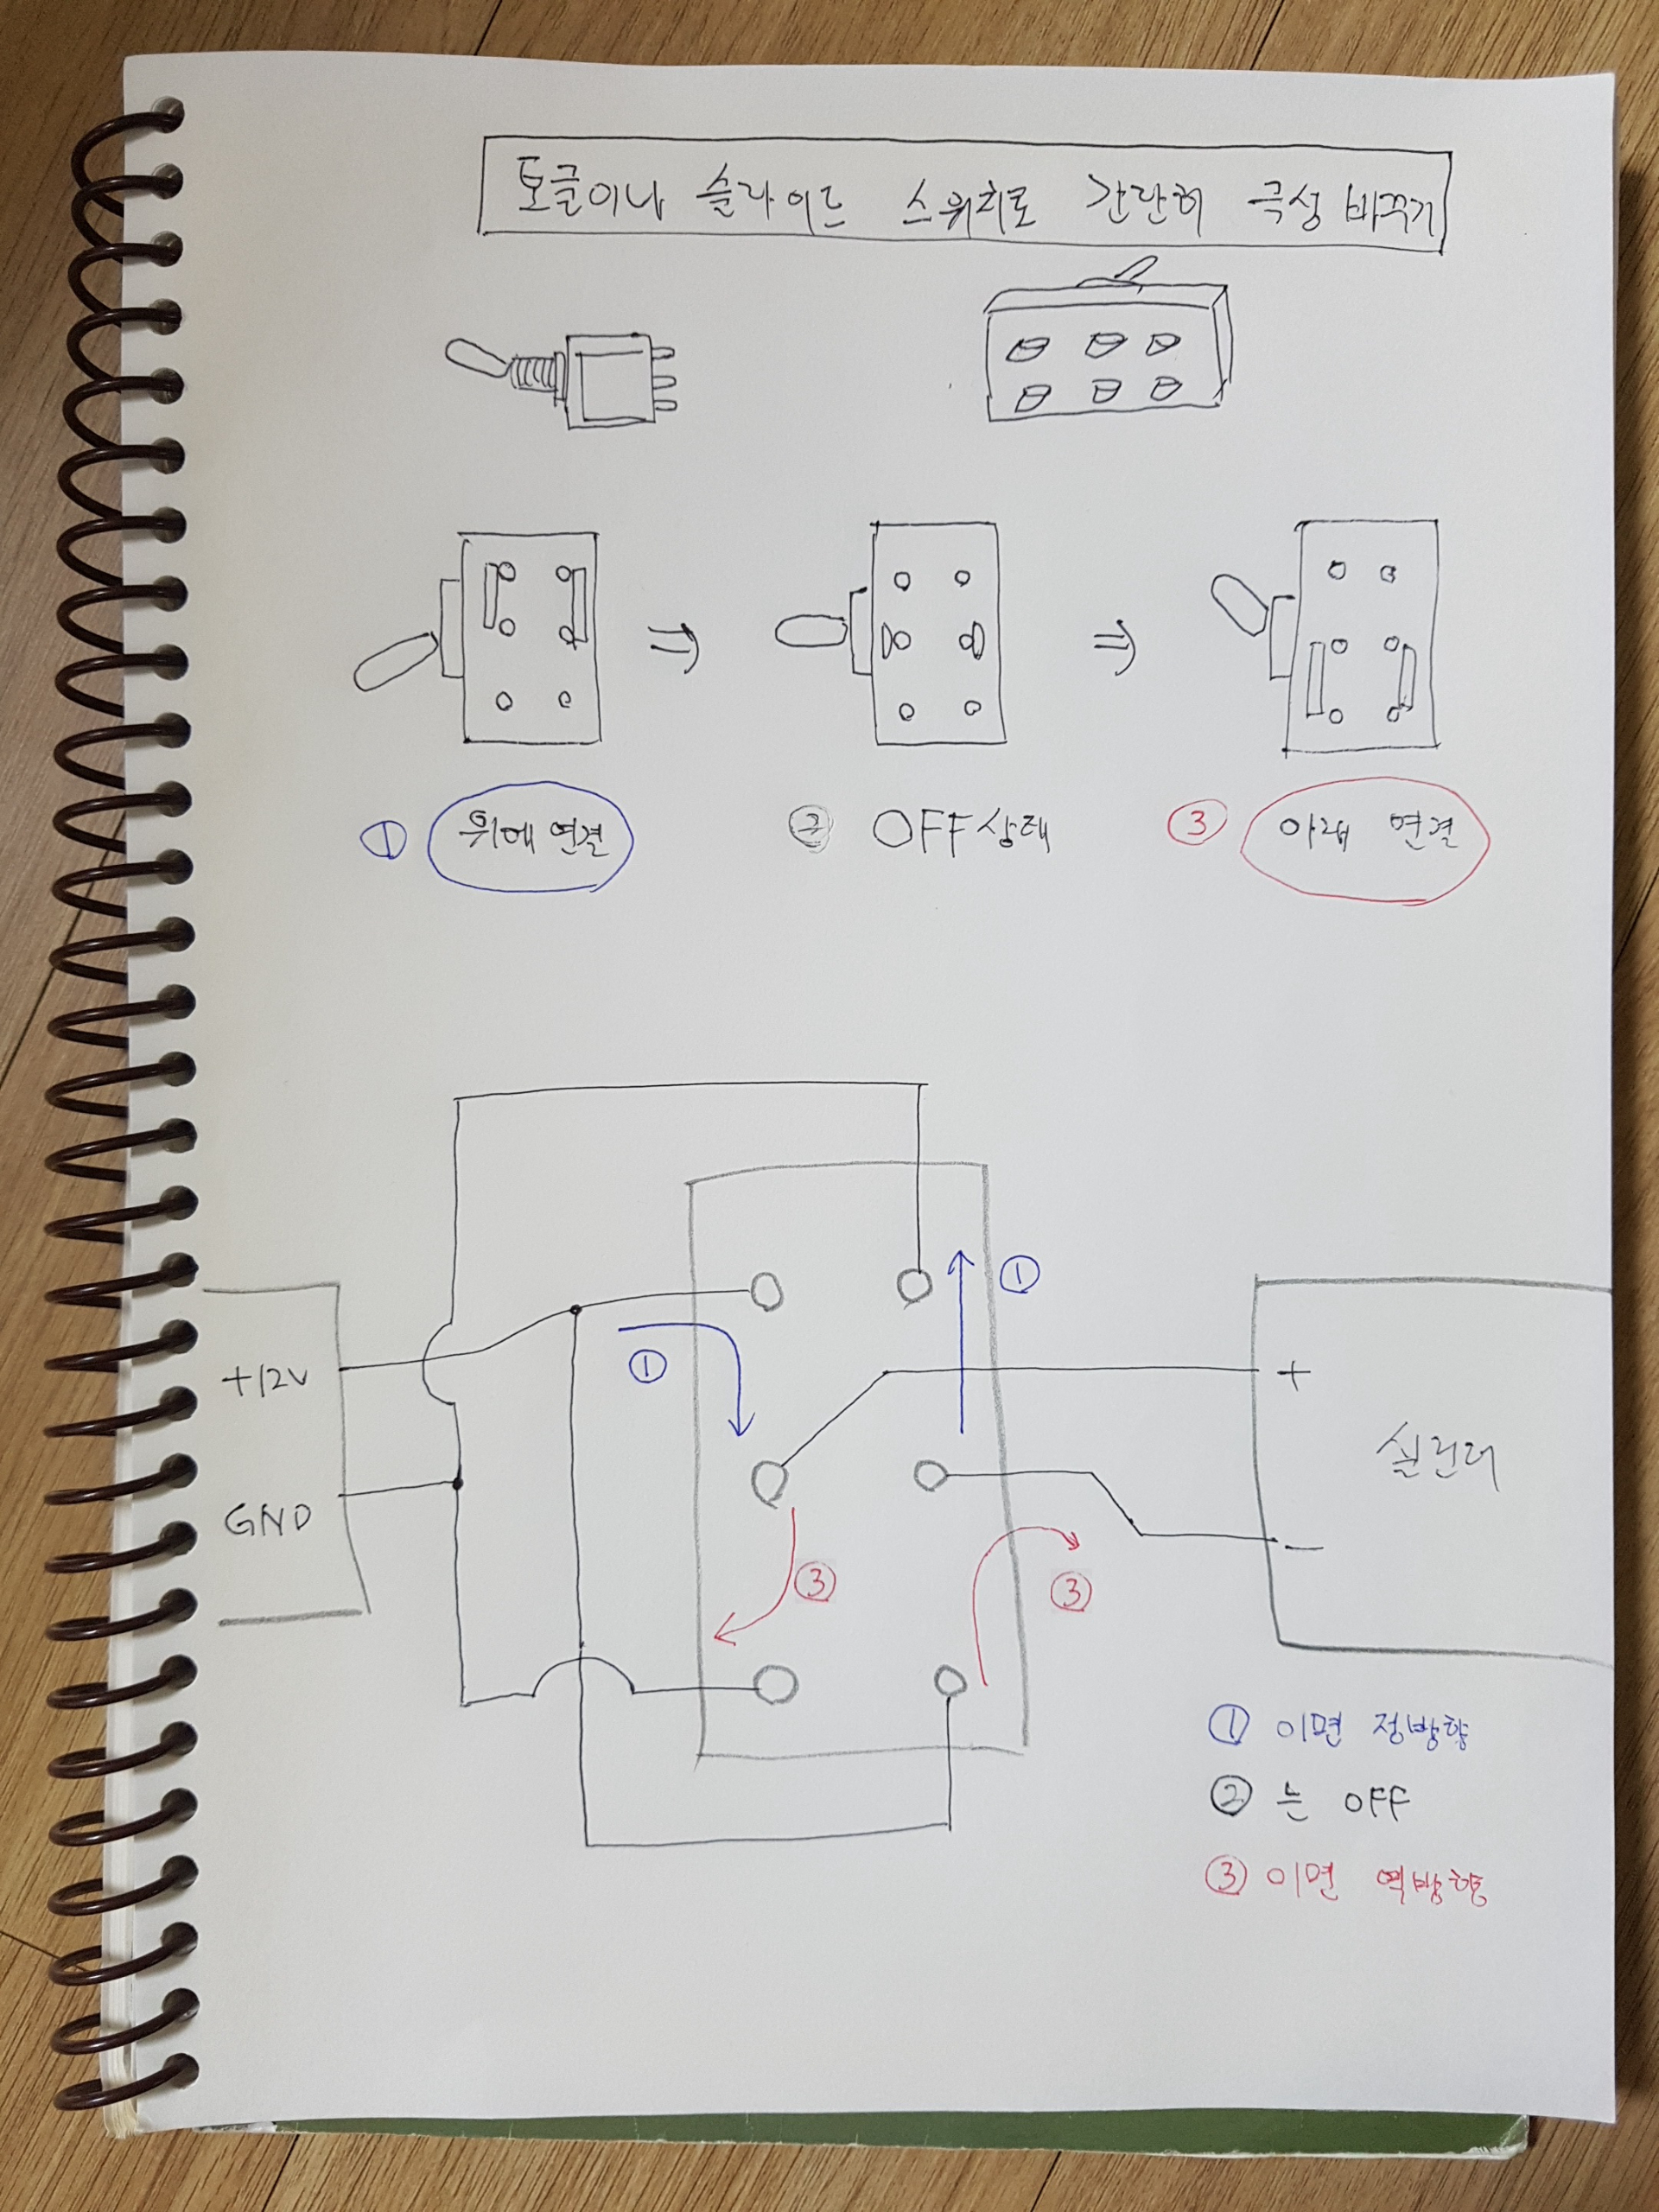 토글이나 슬라이드 스위치로 간단히 극성 바꾸기
① 위에 연결
② OFF상태
③ 아래 연결
①
①
+12V
+
실린더
GND
−
③
③
① 이면 정방향
② 는 OFF
③ 이면 역방향